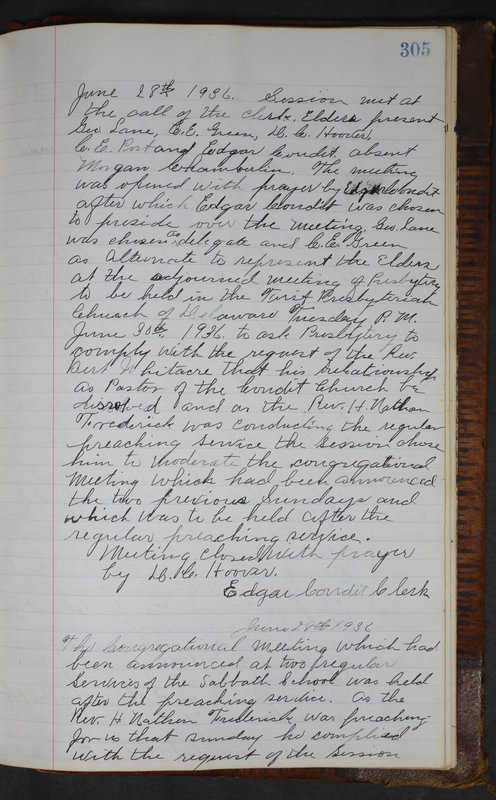 305
June 28th 1936. Session met at
the call of the clerk. Elders present
Geo Lane, C. E. Green, D. C. Hoover,
C. E. Post and Edgar Condit. absent
Morgan Chamberlin. The meeting
was opened with prayer by Edgar Condit
after which Edgar Condit was chosen
to preside over the meeting. Geo Lane
was chosen as delegate and C. E. Green
as alternate to represent the Elders
at the adjourned meeting of Presbytery
to be held in the First Presbyterian
Church of Delaware Tuesday P. M.
June 30th, 1936. to ask Presbytery to
comply with the request of the Rev
Bert Whitacre that his relationship
as Pastor of the Condit Church be
dissolved and as the Rev. H. Nathan
Frederick was conducting the regular
preaching service the Session chose
him to moderate the congregational
meeting which had been announced
the two previous Sundays and
which was to be held after the
regular preaching service.
Meeting closed with prayer
by D. C. Hoover.
Edgar Condit Clerk
June 28th 1936
The Congregational Meeting which had
been announced at two regular
services of the Sabbath School was held
after the preaching service. As the
Rev. H Nathan Frederick was preaching
for us that sunday he complied
with the request of the Session